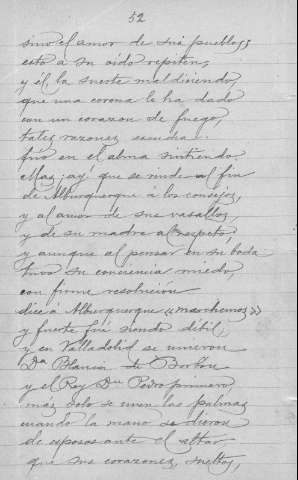 52
sino el amor de sus pueblos;
esto a su oido repiten,
y él la suerte maldiciendo,
que una corona le ha dado
con un corazon de fuego,
tales razones escucha
frio en el alma sintiendo.
Mas ¡ay! que se rinde al fin
de Alburquerque á los consejos,
y al amor de sus vasallos,
y de su madre al respeto;
y aunque al pensar en su boda
tuvo su conciencia miedo,
con firme resolucion
dice á Alburquerque «marchemos»
y fuerte fué siendo débil;
y en Valladolid se unieron
Dª Blanca de Borbon
y el Rey Dn Pedro primero,
mas solo se unen las palmas
cuando la mano se dieron
de esposos ante el altar
que sus corazones, sueltos,